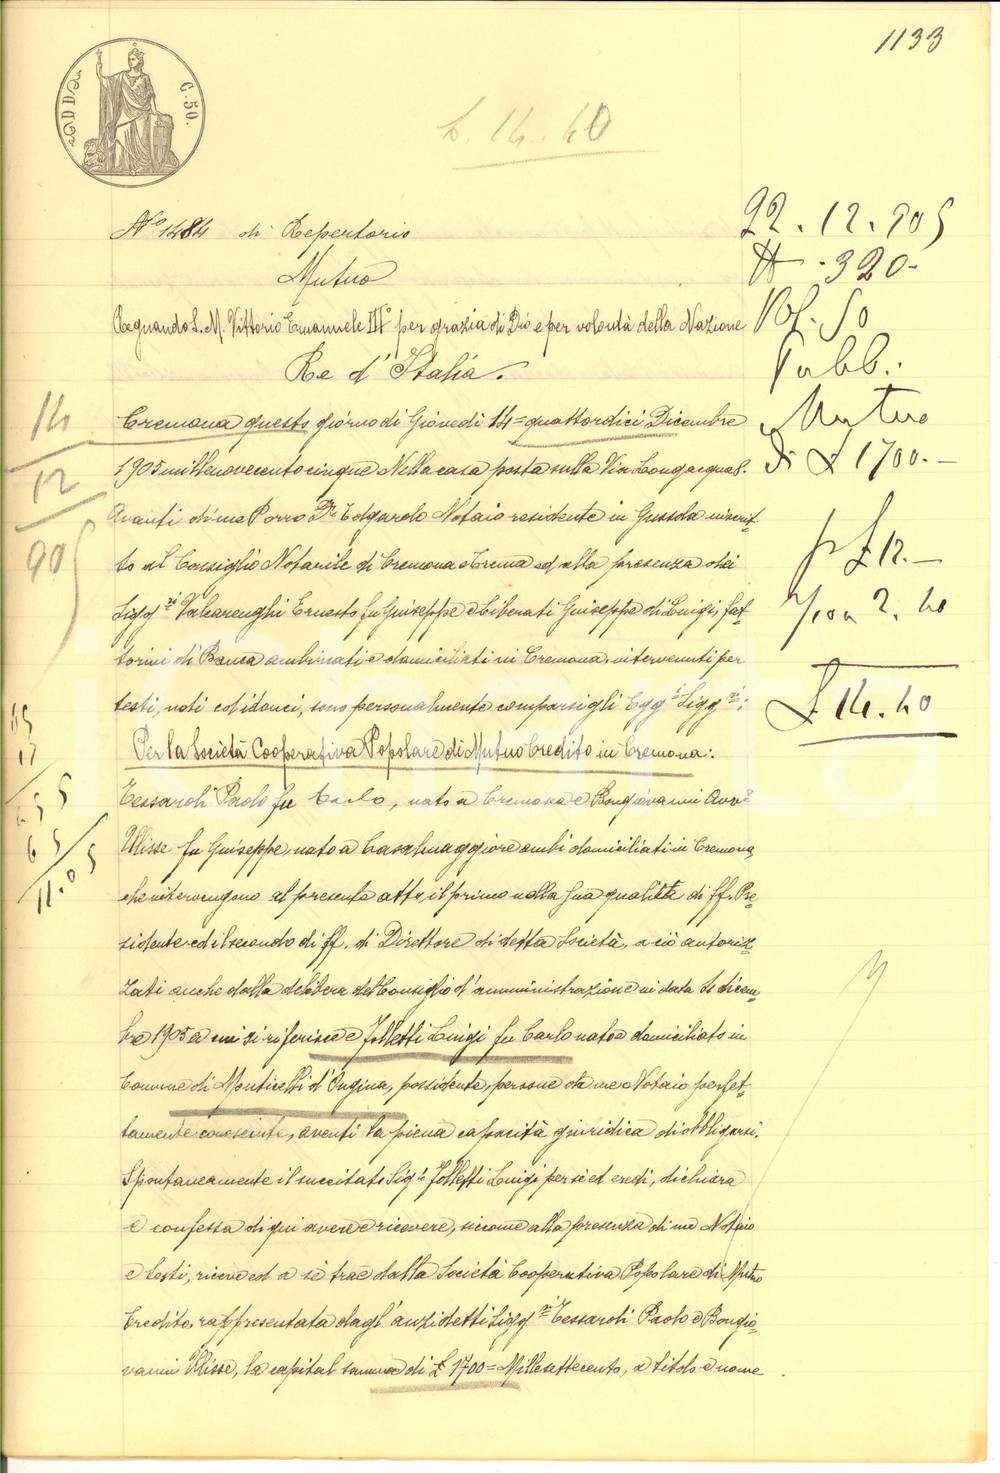 1133
C. 50.
L. 14. 40
N.o 1484 di Repertorio
Mutuo
Regnando S. M. Vittorio Emanuele III° per grazia di Dio e per volontà della Nazione
Re d'Italia.
Cremona questo giorno di Giovedì 14 = quattordici Dicembre
1905 millenovecentocinque Nella casa posta sulla Via Longacqua
Avanti di me Porro Dr. Edgardo Notaio residente in Gussola inscrit-
to al Consiglio Notarile di Cremona e Crema ed alla presenza dei
Sigg.ri Valcarenghi Ernesto fu Giuseppe e Liberati Giuseppe di Luigi, fat-
torini di Banca ambi nati e domiciliati in Cremona, intervenuti per
testi, noti ed idonei, sono personalmente comparsi gli Egg.i Sigg.ri:
Per la Società Cooperativa Popolare di Mutuo Credito in Cremona:
Tessaroli Paolo fu Carlo, nato a Cremona e Bongiovanni Avv.o
Ulisse fu Giuseppe, nato a Casalmaggiore ambi domiciliati in Cremona,
che intervengono al presente atto, il primo nella sua qualità di ff. Pre-
sidente ed il secondo di ff. di Direttore di detta Società, a ciò autoriz-
zati anche dalla delibera del Consiglio d'amministrazione in data dicem-
bre 1905 a cui si riferisce e Folletti Luigi fu Carlo nato e domiciliato in
Comune di Monticelli d'Ongina, possidente, persone da me Notaio perfet-
tamente conosciute, aventi la piena capacità giuridica di obbligarsi.
Spontaneamente il succitato Sig.r Folletti Luigi per sè ed eredi, dichiara
e confessa di qui avere e ricevere, siccome alla presenza di me Notaio
e testi, riceve ed a sè trae dalla Società Cooperativa Popolare di Mutuo
Credito, rappresentata dagl'anzidetti Sigg.ri Tessaroli Paolo e Bongio-
vanni Ulisse, la capital somma di £ 1700 = Millesettecento, a titolo e nome
22. 12. 905
N - 320 -
Vol. 50
Pubb.
Mutuo
Di £ 1700. -
p £ 12. -
2. 40
£ 14. 40
14
12
905
65
17
455
65
11.05